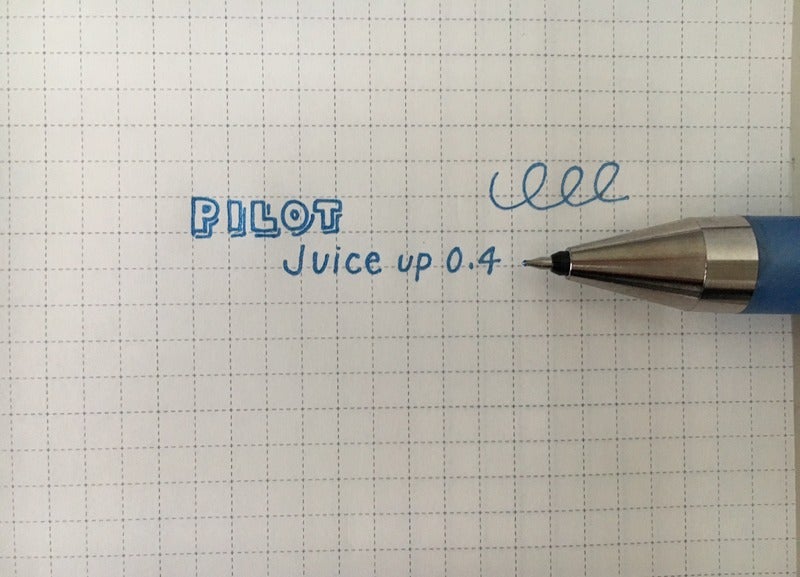 PILOT
Juice up 0.4